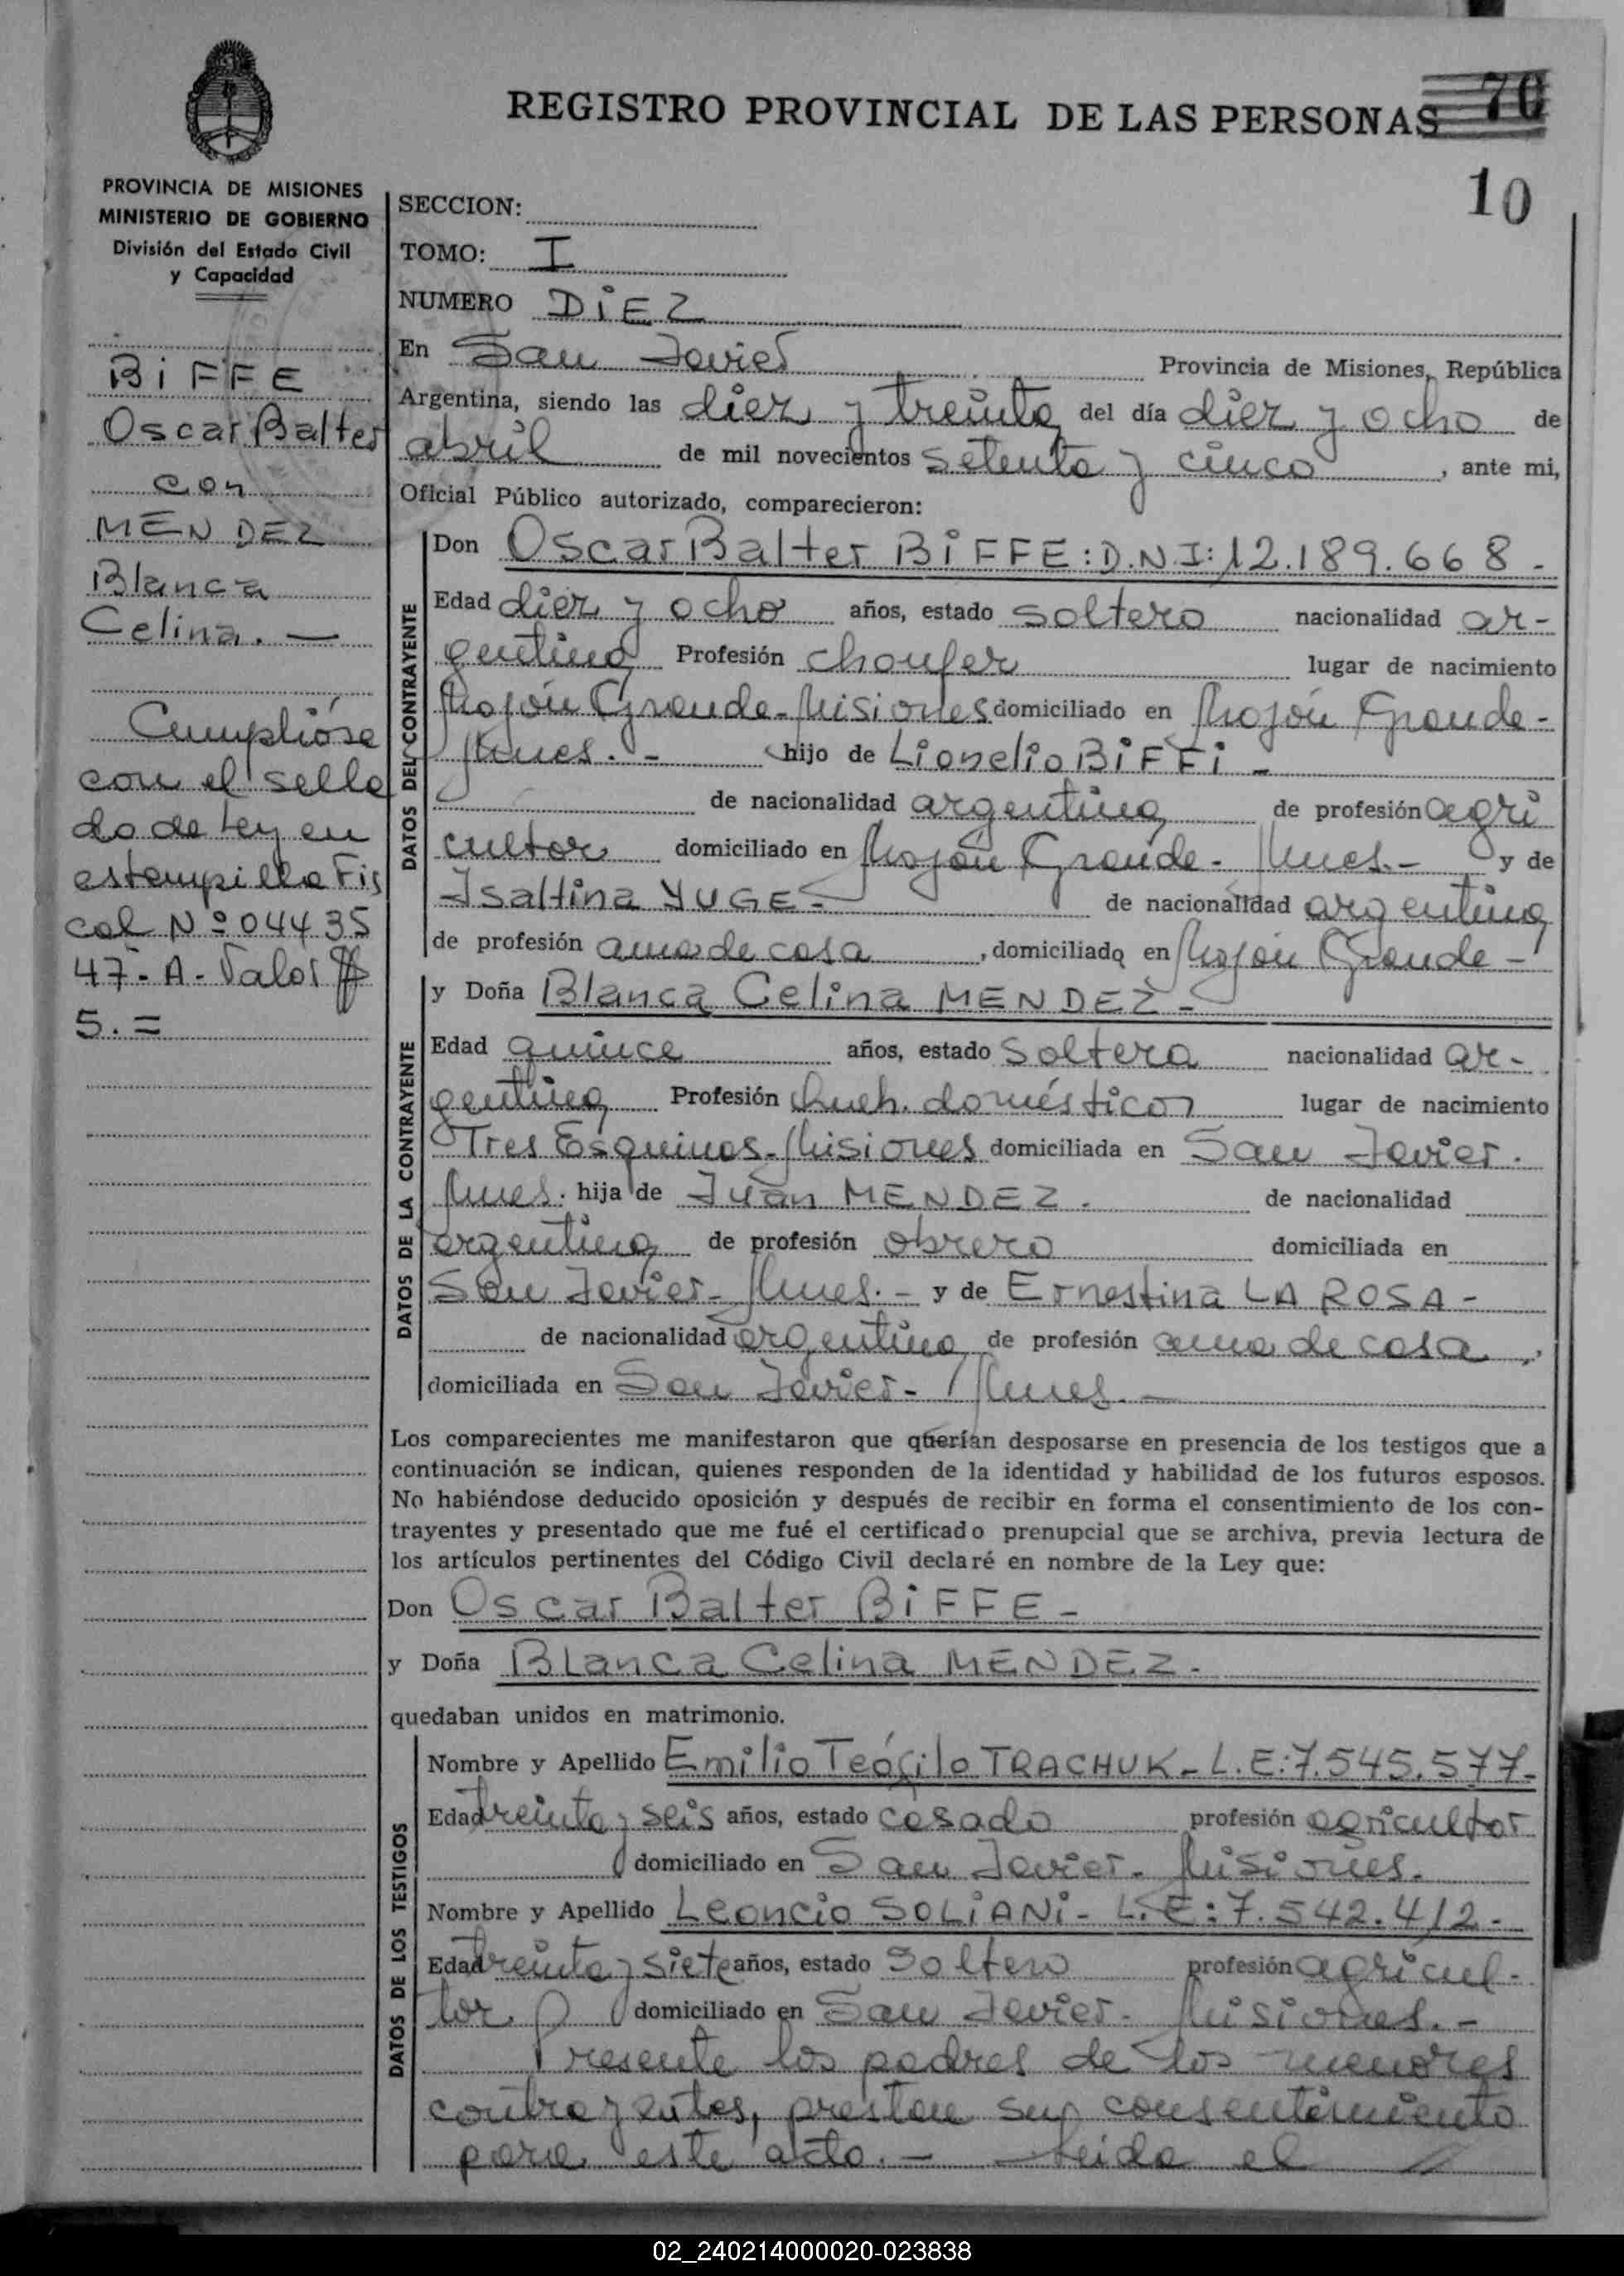 REGISTRO PROVINCIAL DE LAS PERSONAS 70
10
PROVINCIA DE MISIONES
MINISTERIO DE GOBIERNO
División del Estado Civil
y Capacidad
BiFFE
Oscar Balter
con
MENDEZ
Blanca
Celina. —
Cumplióse
con el sella
do de Ley en
estampilla Fis
cal Nº 04435
47-A-Valor $
5.=
SECCION:
TOMO: I
NUMERO DiEZ
En San Javier Provincia de Misiones, República
Argentina, siendo las diez y treinta del día diez y ocho de
abril de mil novecientos setenta y cinco, ante mi,
Oficial Público autorizado, comparecieron:
DATOS DEL CONTRAYENTE
Don Oscar Balter BiFFE: D.N.I: 12.189.668-
Edad diez y ocho años, estado soltero nacionalidad ar-
gentina Profesión choufer lugar de nacimiento
Mojón Grande-Misiones domiciliado en Mojón Grande-
Mnes.- hijo de Lionelio BiFFi-
de nacionalidad argentina de profesión agri
cultor domiciliado en Mojón Grande-Mnes.- y de
Isaltina YUGE- de nacionalidad argentina
de profesión ama de casa, domiciliado en Mojón Grande-
DATOS DE LA CONTRAYENTE
y Doña Blanca Celina MENDEZ-
Edad quince años, estado soltera nacionalidad ar-
gentina Profesión Queh. domésticos lugar de nacimiento
Tres Esquinas-Misiones domiciliada en San Javier.
Mnes. hija de Juan MENDEZ. de nacionalidad
argentina de profesión obrero domiciliada en
San Javier-Mnes.- y de Ernestina LA ROSA-
de nacionalidad argentina de profesión ama de casa,
domiciliada en San Javier-Mnes.—
Los comparecientes me manifestaron que querían desposarse en presencia de los testigos que a
continuación se indican, quienes responden de la identidad y habilidad de los futuros esposos.
No habiéndose deducido oposición y después de recibir en forma el consentimiento de los con-
trayentes y presentado que me fué el certificado prenupcial que se archiva, previa lectura de
los artículos pertinentes del Código Civil declaré en nombre de la Ley que:
Don Oscar Balter BiFFE-
y Doña Blanca Celina MENDEZ.
quedaban unidos en matrimonio.
DATOS DE LOS TESTIGOS
Nombre y Apellido Emilio Teófilo TRACHUK-L.E:7.545.577-
Edad treinta y seis años, estado casado profesión agricultor
domiciliado en San Javier-Misiones.
Nombre y Apellido Leoncio SOLiANi-L.E:7.542.412-
Edad treinta y siete años, estado soltero profesión agricul-
tor domiciliado en San Javier-Misiones.-
Presente los padres de los menores
contrayentes, prestan su consentimiento
para este acto.- Leida el
02_240214000020-023838